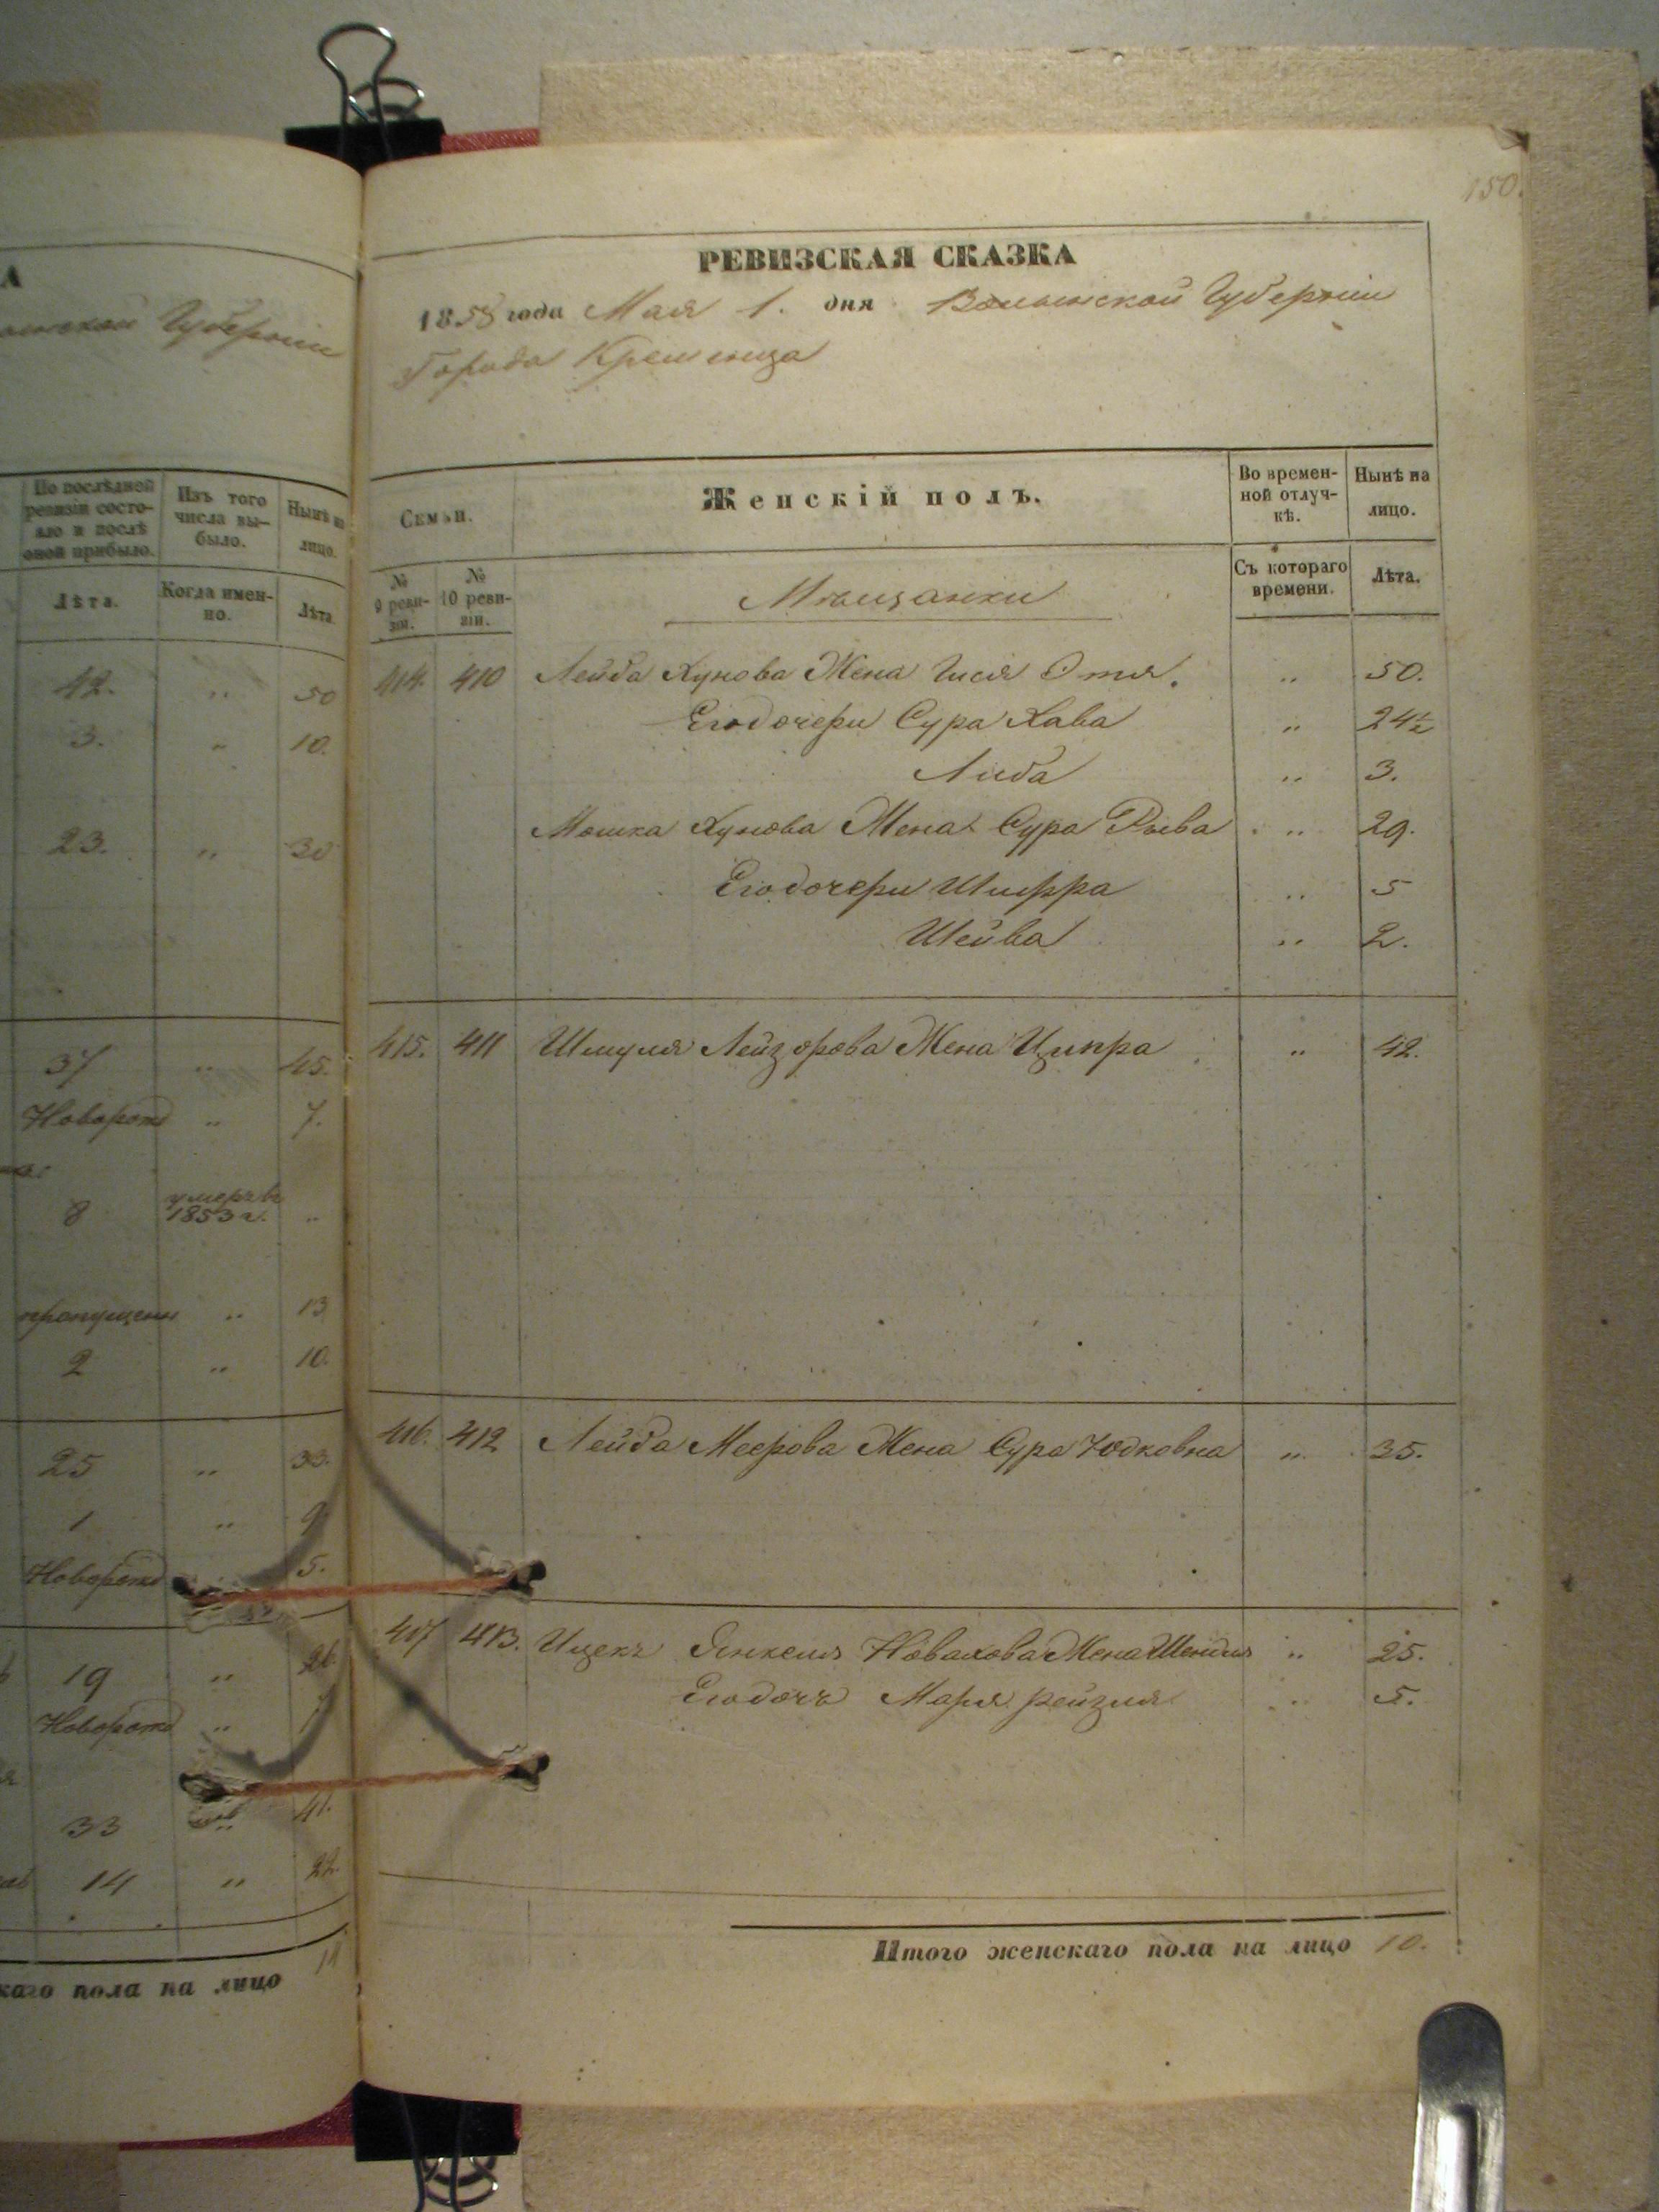 А
Губерніи
По послѣдней
ревизіи состо-
яло и послѣ
оной прибыло.
Изъ того
числа вы-
было.
Нынѣ на
лицо.
Лѣта.
Когда имен-
но.
Лѣта
42. „ 50
3. „ 10.
23. „ 30
37 „ 45.
Новорожд „ 7.
8 умеръ въ 1853 г. „
пропущенъ „ 13
2 „ 10.
25 „ 33.
1 „ 9
Новорожд 5.
19 „ 26.
Новорожд „ 7
33 „ 41.
14 „ 22.
скаго пола на лицо 11
150.
РЕВИЗСКАЯ СКАЗКА
1858 года Мая 1. дня Волынской Губерніи
Города Кременца
Семьи.
Женскій полъ.
Во времен-
ной отлуч-
кѣ.
Нынѣ на
лицо.
№
9 реви-
зіи.
№
10 реви-
зіи.
Мѣщанки
Съ котораго
времени.
Лѣта.
414. 410 Лейба Хунова Жена Гися Этя. „ 50.
Его дочери Сура Хава „ 24½
Либа „ 3.
Мошка Хунова Жена Сура Рыва „ 29.
Его дочери Шифра „ 5
Шейва „ 2.
415. 411 Шмуля Лейзорова Жена Ципра „ 42.
416. 412 Лейба Меерова Жена Сура Юдковна „ 35.
417 413. Ицекъ Янкеля Новакова Жена Шендля „ 25.
Его дочь Маря рейзля „ 5.
Итого женскаго пола на лицо 10.